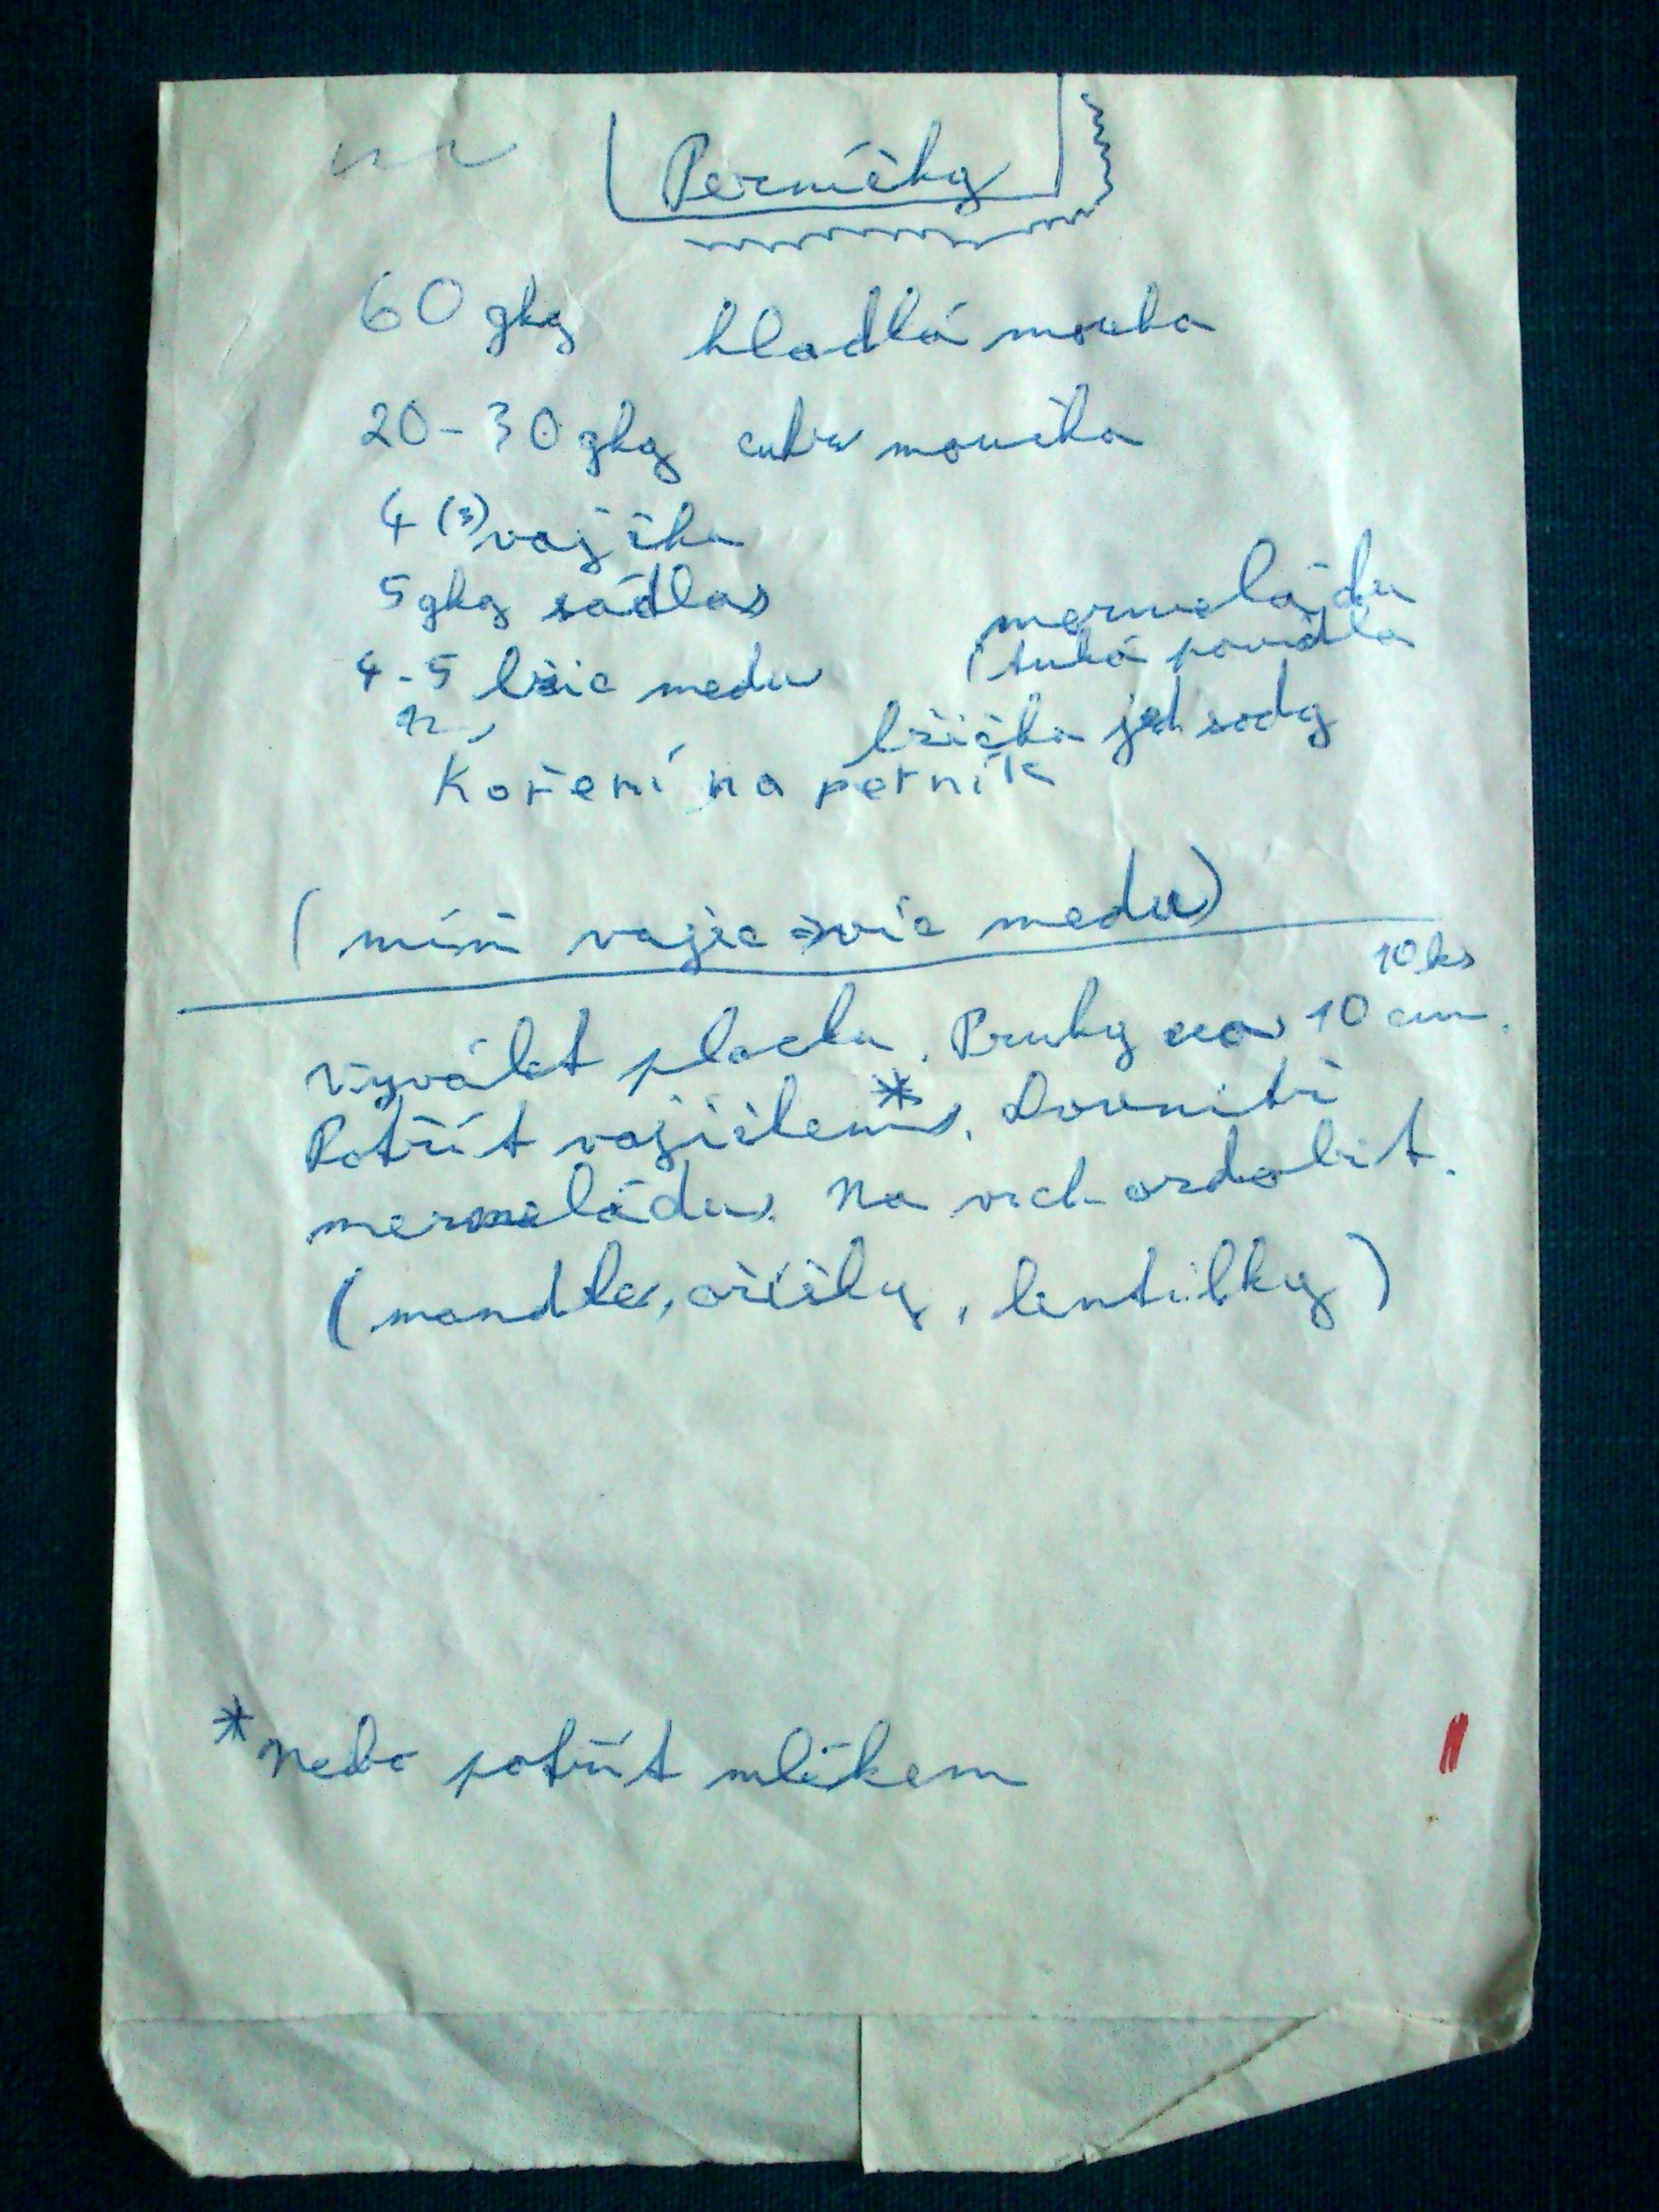 Perníčky
60 gkg hladká mouka
20-30 gkg cukr moučka
4 (3) vajíčka
5 gkg sádla
4-5 lžic medu
marmeládu
(tuhá povidla
lžička jed sody
Koření na perník
(míň vajec → víc medu)
10 ks
Vyválet placku. Pruhy cca 10 cm.
Potřít vajíčkem*. Dovnitř
marmeládu. Na vrch ozdobit.
(mandle, oříšky, lentilky)
*Nebo potřít mlékem